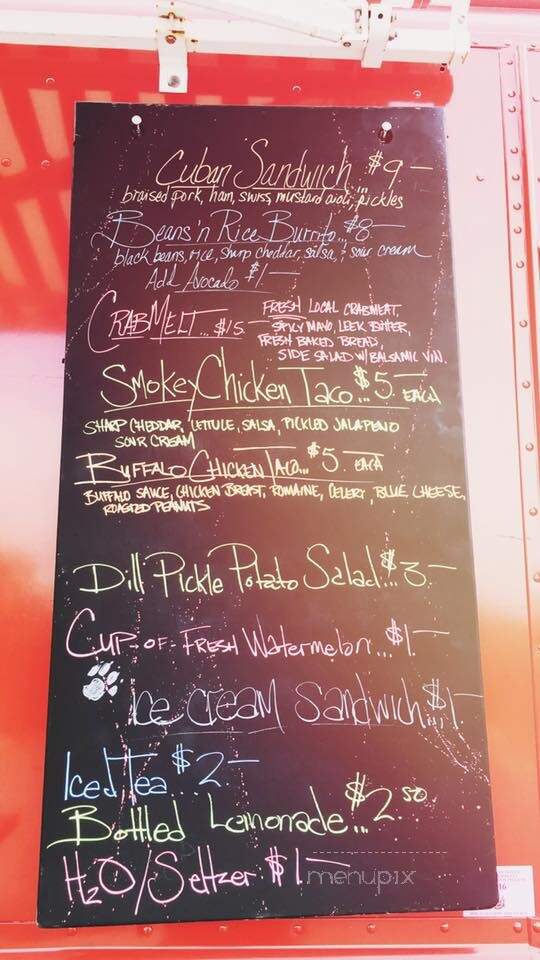 Cuban Sandwich... $9-
braised pork, ham, swiss, mustard aioli, pickles
Beans 'n Rice Burrito... $8-
black beans, rice, sharp cheddar, salsa, + sour cream
Add Avocado $1-
CRAB MELT... $15
FRESH LOCAL CRABMEAT,
SPICY MAYO, LEEK BUTTER,
FRESH BAKED BREAD,
SIDE SALAD W/ BALSAMIC VIN.
SMOKEY CHICKEN TACO... $5.- EACH
SHARP CHEDDAR, LETTUCE, SALSA, PICKLED JALAPENO
SOUR CREAM
BUFFALO CHICKEN TACO... $5. EACH
BUFFALO SAUCE, CHICKEN BREAST, ROMAINE, CELERY, BLUE CHEESE,
ROASTED PEANUTS
Dill Pickle Potato Salad... $3-
CUP-OF-FRESH Watermelon... $1.-
Ice cream Sandwich... $1.
Iced Tea... $2-
Bottled Lemonade... $2.50
H2O/Seltzer $1.-
menupix
16